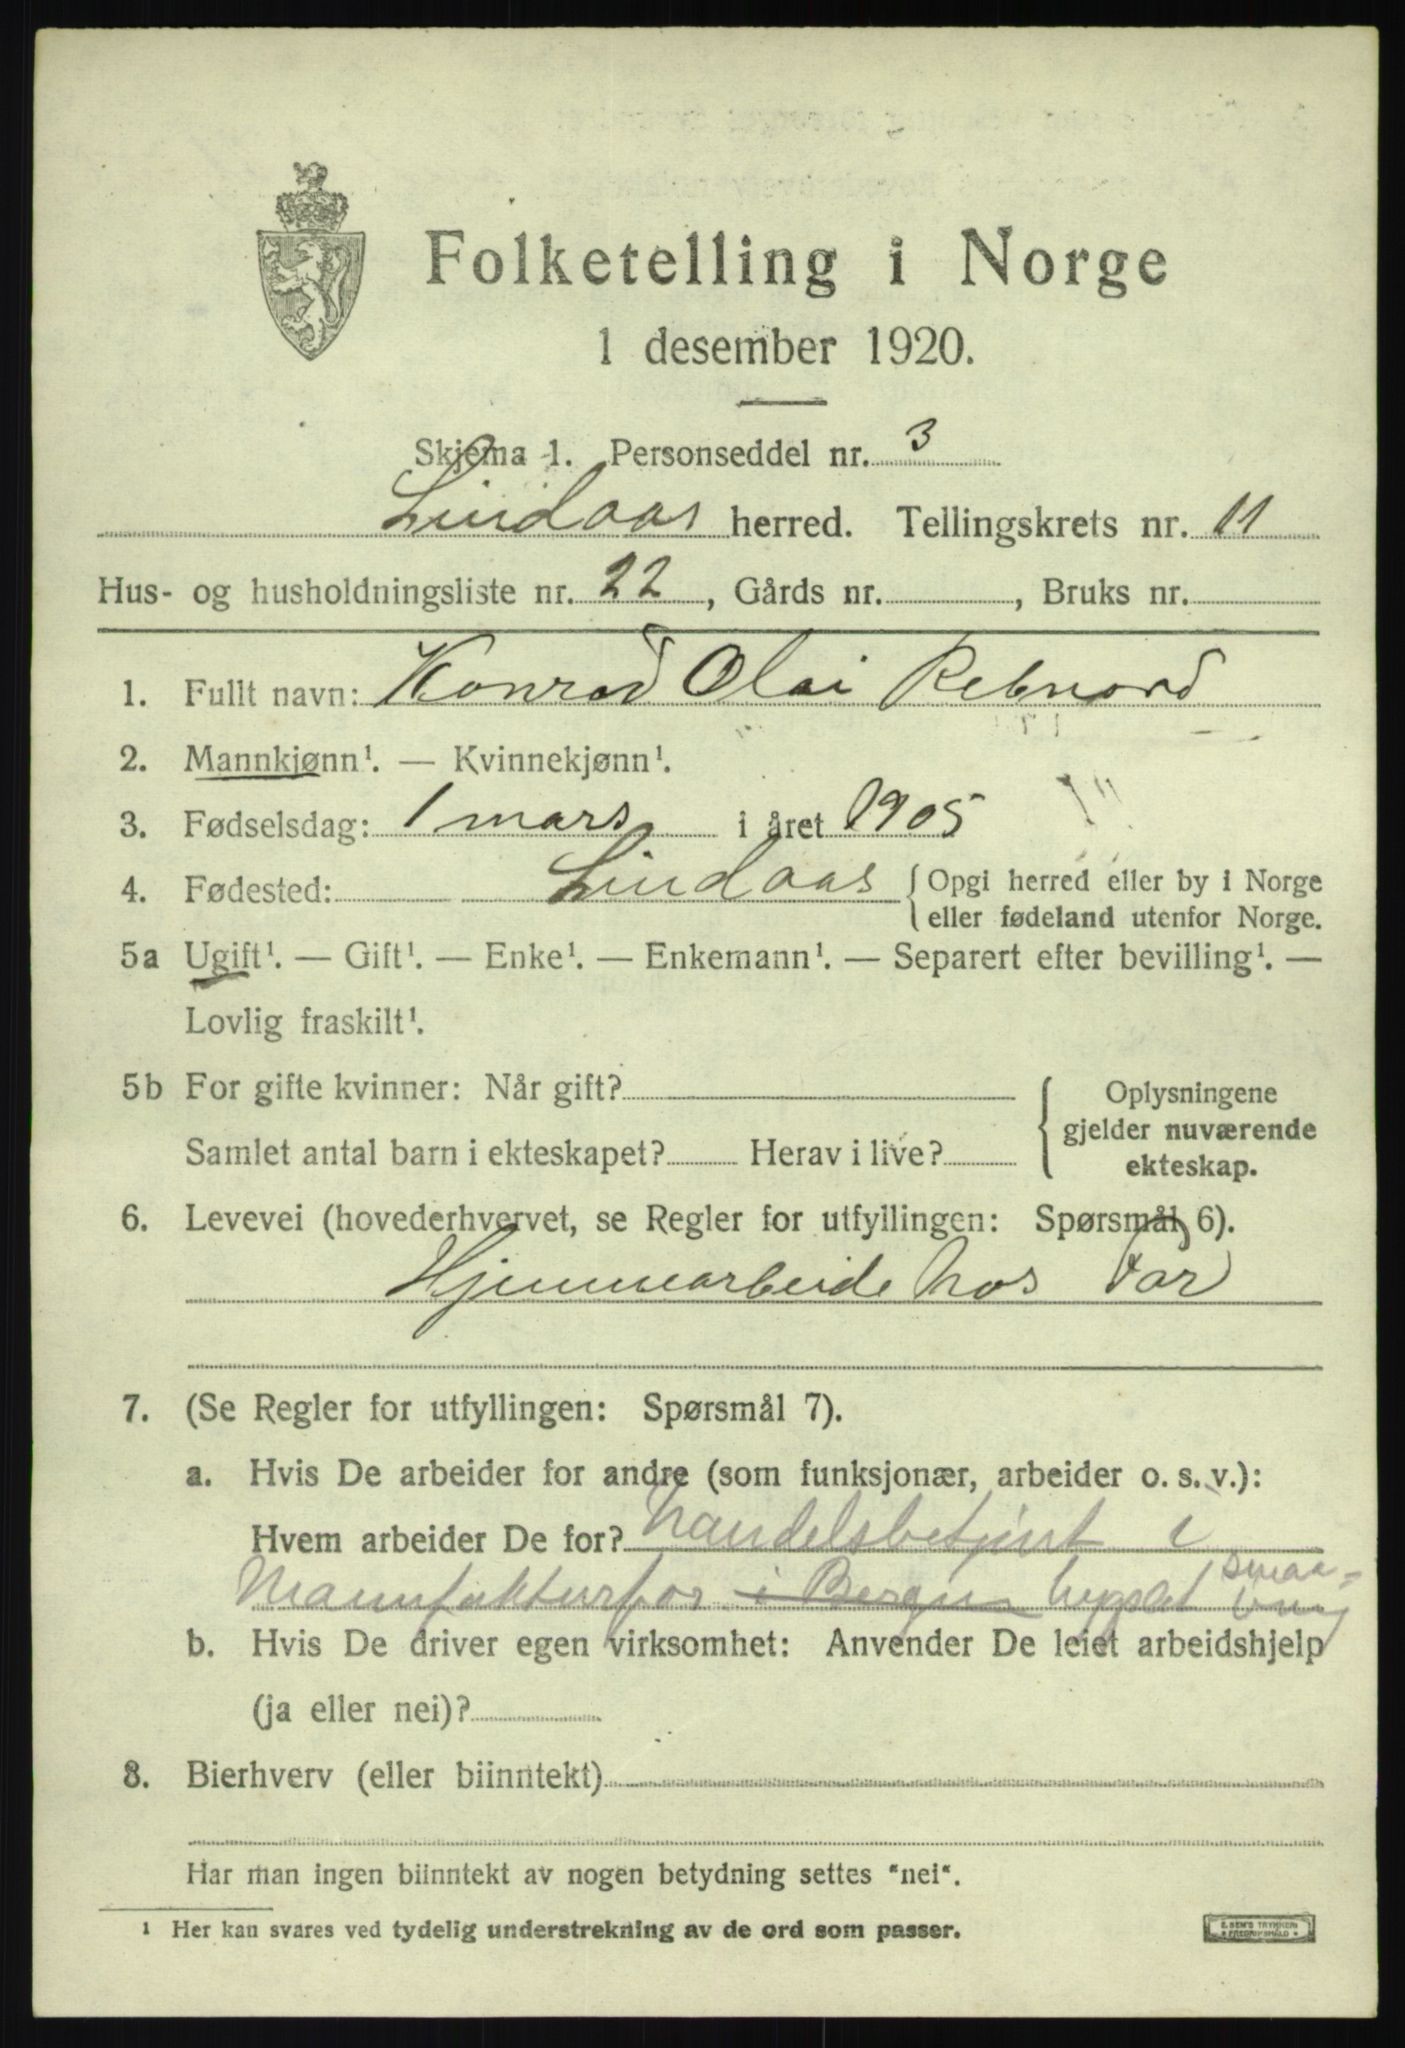 Folketelling i Norge
1 desember 1920.
Skjema 1. Personseddel nr. 3
Lindaas herred. Tellingskrets nr. 11
Hus- og husholdningsliste nr. 22, Gårds nr. , Bruks nr.
1. Fullt navn: Konrad Olai Rebnord
2. Mannkjønn¹. — Kvinnekjønn¹.
3. Fødselsdag: 1 mars i året 1905
4. Fødested: Lindaas { Opgi herred eller by i Norge
eller fødeland utenfor Norge.
5a Ugift¹. — Gift¹. — Enke¹. — Enkemann¹. — Separert efter bevilling¹. —
Lovlig fraskilt¹.
5b For gifte kvinner: Når gift?
Samlet antal barn i ekteskapet? Herav i live?
Oplysningene
gjelder nuværende
ekteskap.
6. Levevei (hovederhvervet, se Regler for utfyllingen: Spørsmål 6).
Hjemmearbeide hos Far
7. (Se Regler for utfyllingen: Spørsmål 7).
a. Hvis De arbeider for andre (som funksjonær, arbeider o. s. v.):
Hvem arbeider De for? handelsbetjent i
Manufakturfor i Bergen
b. Hvis De driver egen virksomhet: Anvender De leiet arbeidshjelp
(ja eller nei)?
8. Bierhverv (eller biinntekt)
Har man ingen biinntekt av nogen betydning settes "nei".
¹ Her kan svares ved tydelig understrekning av de ord som passer.